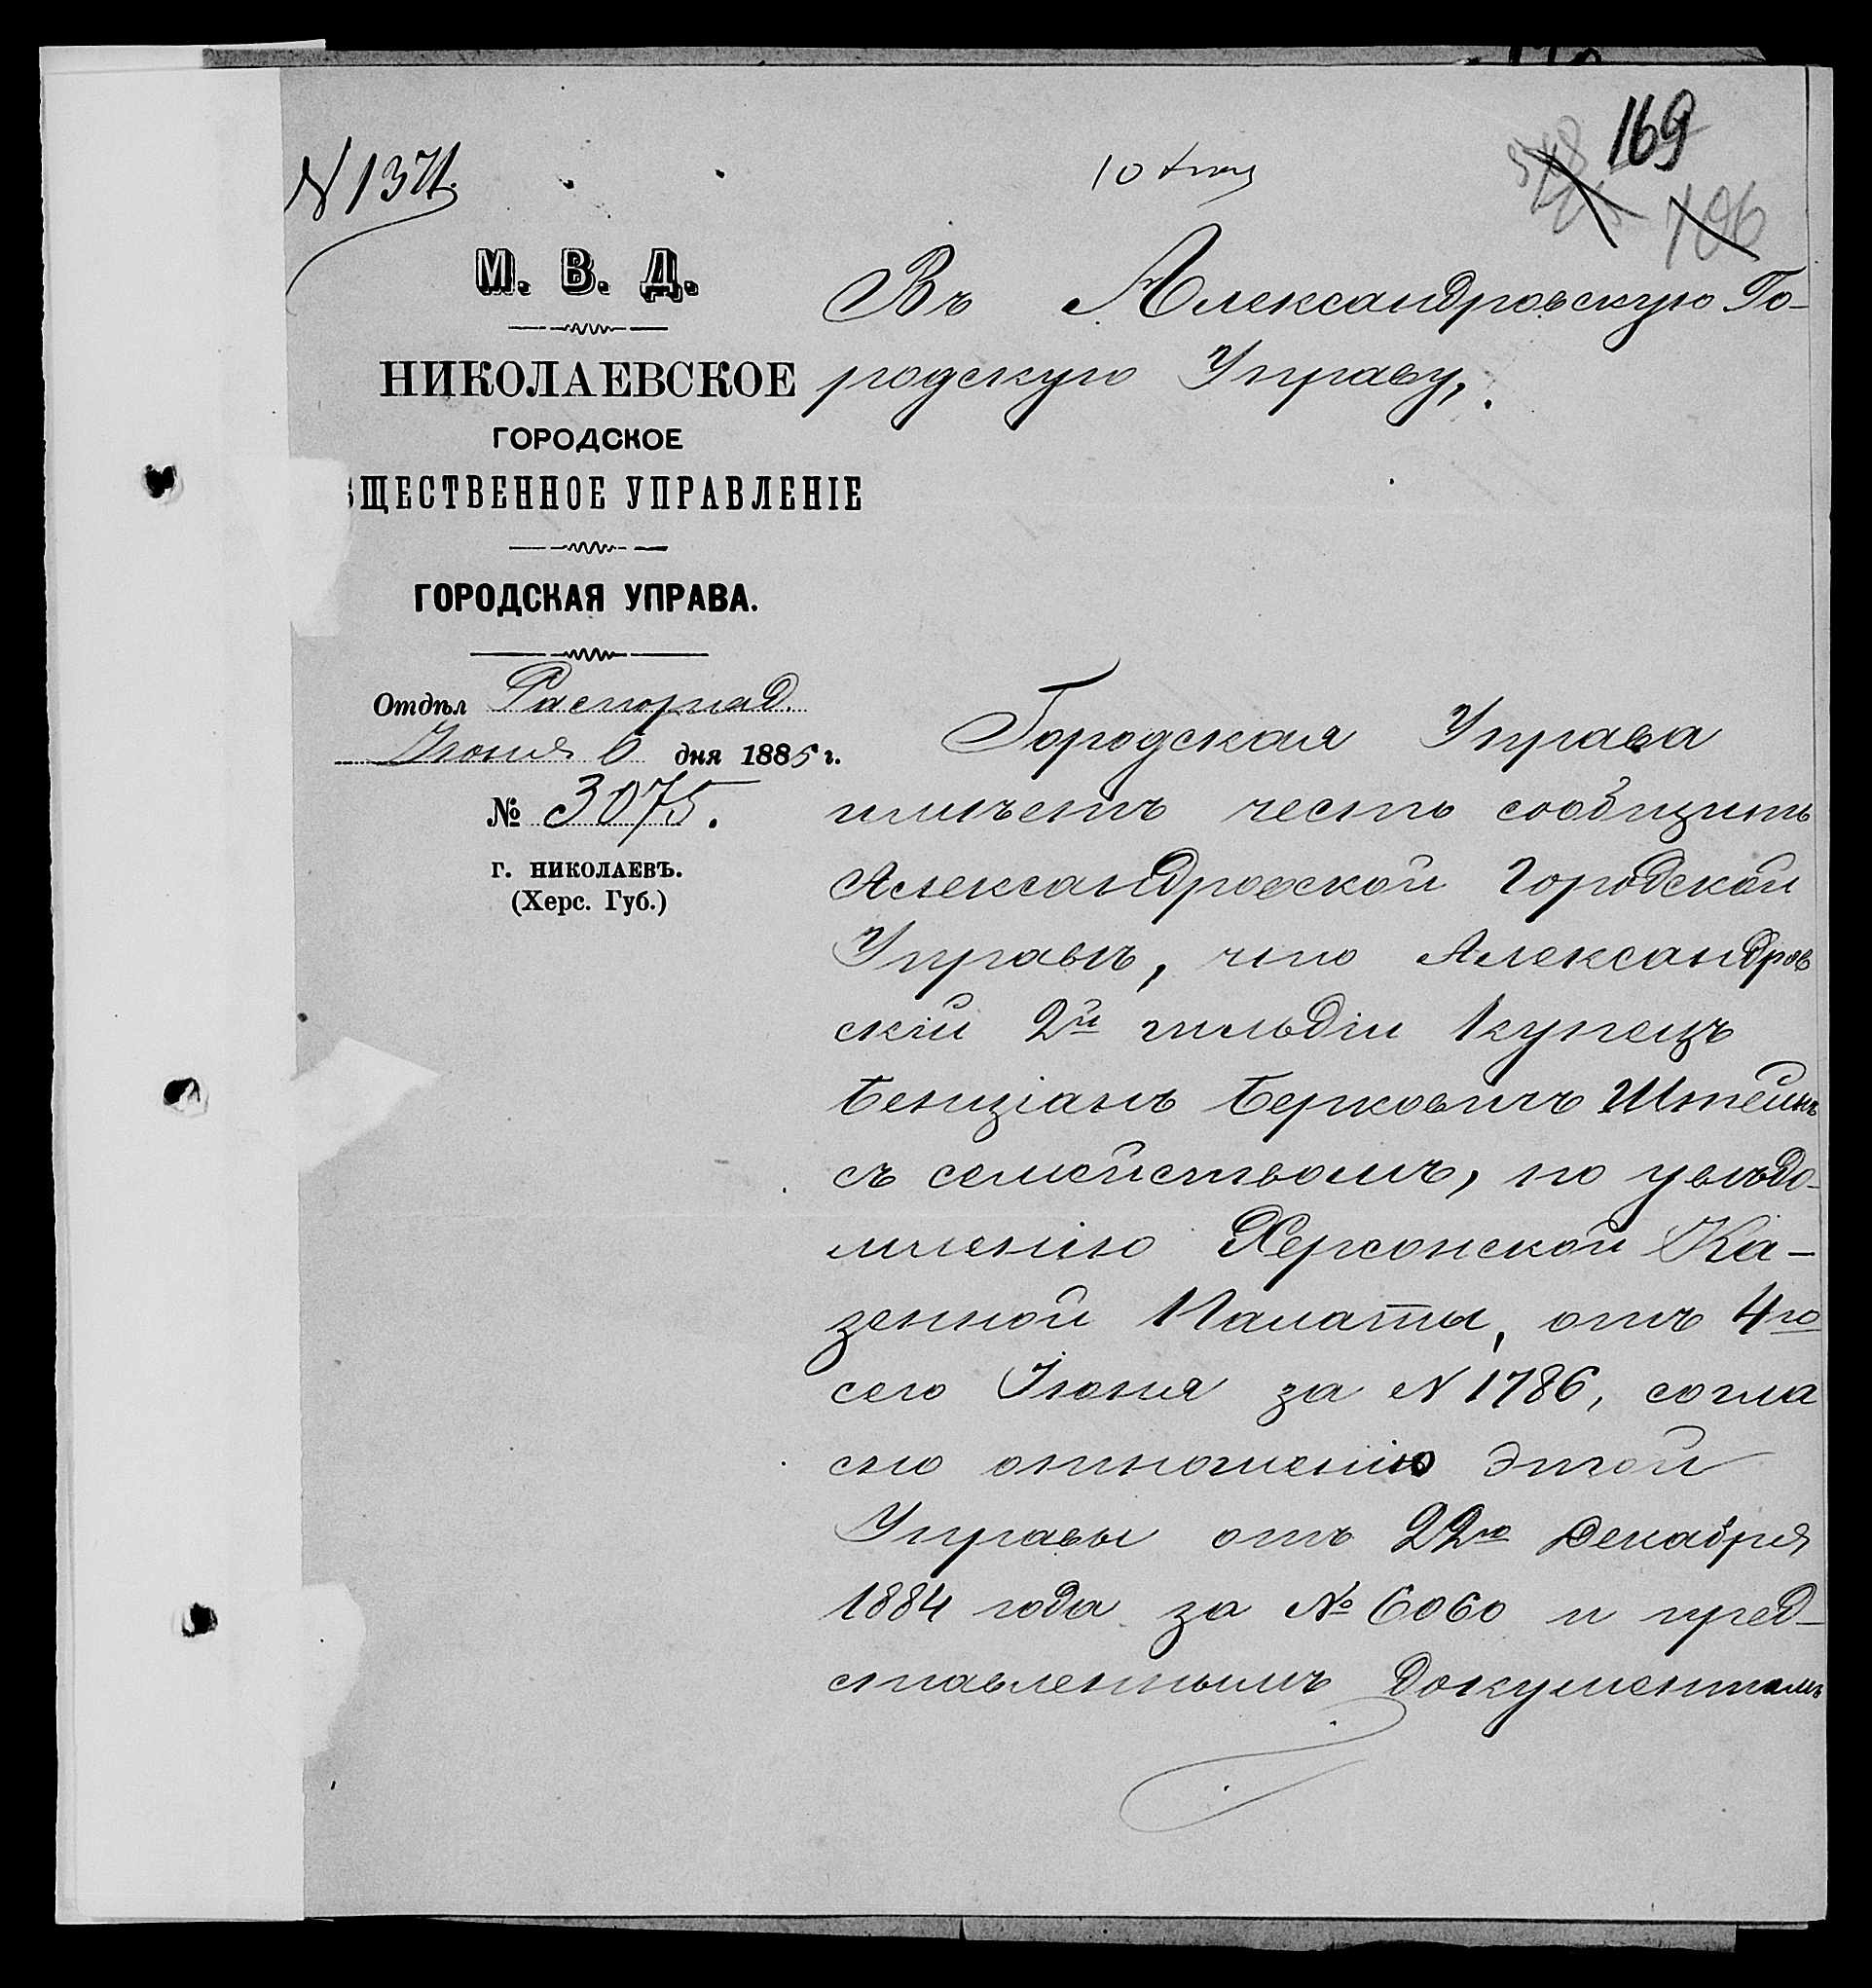 169
106
М. В. Д.
НИКОЛАЕВСКОЕ
ГОРОДСКОЕ
ЩЕСТВЕННОЕ УПРАВЛЕНІЕ
ГОРОДСКАЯ УПРАВА.
Отдѣл Распоряд.
Іюня 6 дня 1885 г.
№ 3075.
Г. НИКОЛАЕВЪ.
(Херс. Губ.)
Въ Александровскую Го-
родскую Управу,
Городская Управа
имѣетъ честь сообщить
Александровской Городской
Управѣ, что Александров
скій 2й гильдіи купецъ
Бенціанъ Берковичъ Штейнъ
съ семействомъ, по увѣдо-
мленію Херсонской Ка-
зенной Палаты, отъ 4го
сего Іюня за N 1786, согла
сно отношенію этой
Управы отъ 22го Декабря
1884 года за № 6060 и пред-
ставленнымъ документамъ